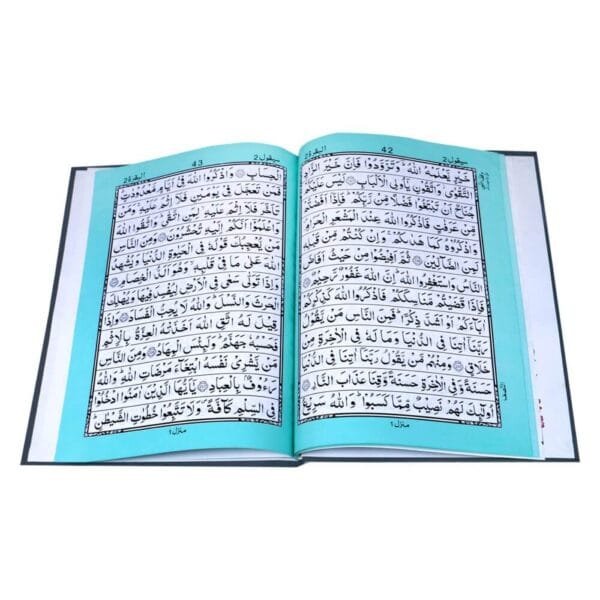 سيقول ٢ 42 البقرة ٢
خَيْرٍ يَّعْلَمْهُ اللّٰهُ وَتَزَوَّدُوْا فَاِنَّ خَيْرَ الزَّادِ
التَّقْوٰى وَاتَّقُوْنِ يٰٓاُولِي الْاَلْبَابِ لَيْسَ عَلَيْكُمْ
جُنَاحٌ اَنْ تَبْتَغُوْا فَضْلًا مِّنْ رَّبِّكُمْ فَاِذَآ اَفَضْتُمْ
مِّنْ عَرَفٰتٍ فَاذْكُرُوا اللّٰهَ عِنْدَ الْمَشْعَرِ الْحَرَامِ
وَاذْكُرُوْهُ كَمَا هَدٰىكُمْ وَاِنْ كُنْتُمْ مِّنْ قَبْلِهٖ
لَمِنَ الضَّآلِّيْنَ ثُمَّ اَفِيْضُوْا مِنْ حَيْثُ اَفَاضَ
النَّاسُ وَاسْتَغْفِرُوا اللّٰهَ اِنَّ اللّٰهَ غَفُوْرٌ رَّحِيْمٌ
فَاِذَا قَضَيْتُمْ مَّنَاسِكَكُمْ فَاذْكُرُوا اللّٰهَ كَذِكْرِكُمْ
اٰبَآءَكُمْ اَوْ اَشَدَّ ذِكْرًا فَمِنَ النَّاسِ مَنْ يَّقُوْلُ
رَبَّنَآ اٰتِنَا فِي الدُّنْيَا وَمَا لَهٗ فِي الْاٰخِرَةِ مِنْ
خَلَاقٍ وَمِنْهُمْ مَّنْ يَّقُوْلُ رَبَّنَآ اٰتِنَا فِي الدُّنْيَا
حَسَنَةً وَّفِي الْاٰخِرَةِ حَسَنَةً وَّقِنَا عَذَابَ النَّارِ
اُولٰٓئِكَ لَهُمْ نَصِيْبٌ مِّمَّا كَسَبُوْا وَاللّٰهُ سَرِيْعُ
منزل ١
سيقول ٢ 43 البقرة ٢
الْحِسَابِ وَاذْكُرُوا اللّٰهَ فِيْٓ اَيَّامٍ مَّعْدُوْدٰتٍ
فَمَنْ تَعَجَّلَ فِيْ يَوْمَيْنِ فَلَآ اِثْمَ عَلَيْهِ وَمَنْ
تَاَخَّرَ فَلَآ اِثْمَ عَلَيْهِ لِمَنِ اتَّقٰى وَاتَّقُوا اللّٰهَ
وَاعْلَمُوْٓا اَنَّكُمْ اِلَيْهِ تُحْشَرُوْنَ وَمِنَ النَّاسِ
مَنْ يُّعْجِبُكَ قَوْلُهٗ فِي الْحَيٰوةِ الدُّنْيَا وَيُشْهِدُ
اللّٰهَ عَلٰى مَا فِيْ قَلْبِهٖ وَهُوَ اَلَدُّ الْخِصَامِ
وَاِذَا تَوَلّٰى سَعٰى فِي الْاَرْضِ لِيُفْسِدَ فِيْهَا وَيُهْلِكَ
الْحَرْثَ وَالنَّسْلَ وَاللّٰهُ لَا يُحِبُّ الْفَسَادَ وَاِذَا
قِيْلَ لَهُ اتَّقِ اللّٰهَ اَخَذَتْهُ الْعِزَّةُ بِالْاِثْمِ
فَحَسْبُهٗ جَهَنَّمُ وَلَبِئْسَ الْمِهَادُ وَمِنَ النَّاسِ
مَنْ يَّشْرِيْ نَفْسَهُ ابْتِغَآءَ مَرْضَاتِ اللّٰهِ وَاللّٰهُ
رَءُوْفٌۢ بِالْعِبَادِ يٰٓاَيُّهَا الَّذِيْنَ اٰمَنُوا ادْخُلُوْا
فِي السِّلْمِ كَآفَّةً وَّلَا تَتَّبِعُوْا خُطُوٰتِ الشَّيْطٰنِ
منزل ١